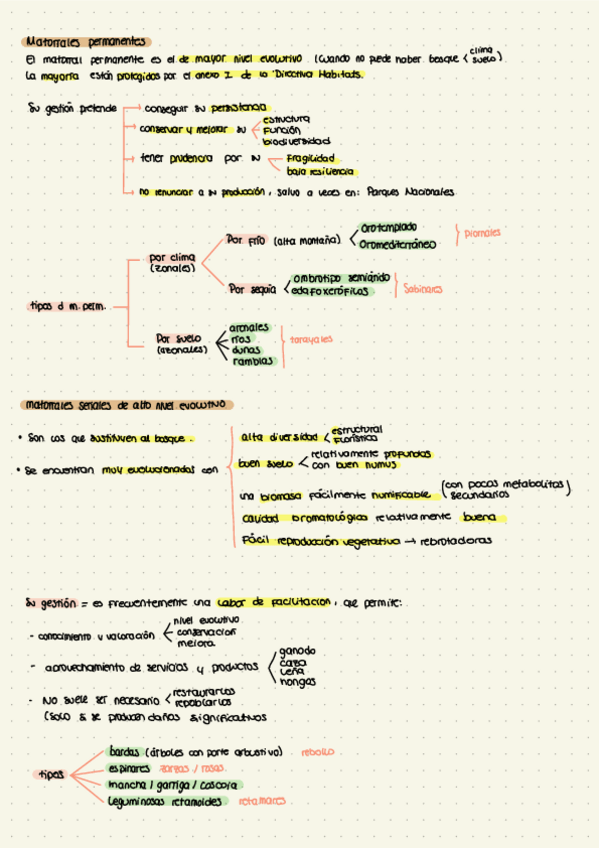 Matorrales permanentes
El matorral permanente es el de mayor nivel evolutivo. (Cuando no puede haber bosque < clima suelo)
La mayoría están protegidos por el anexo I de la Directiva Habitats.
Su gestión pretende
conseguir su persistencia
conservar y mejorar su < estructura
función
biodiversidad
tener prudencia por su < fragilidad
baja resiliencia
no renunciar a su producción, salvo a veces en: Parques Nacionales
tipos d m. perm.
por clima
(zonales)
Por frío (alta montaña) < Orotemplado
Oromediterráneo
piornales
Por sequía < ombrotipo semiárido
edafoxerófilos
Sabinares
Por suelo
(azonales)
arenales
ríos
dunas
ramblas
tarayales
matorrales seriales de alto nivel evolutivo
• Son los que sustituyen al bosque.
• Se encuentran muy evolucionados con
alta diversidad < estructural
florística
buen suelo < relativamente profundos
con buen humus
una biomasa fácilmente humificable (con pocos metabolitos secundarios)
calidad bromatológica relativamente buena
Fácil reproducción vegetativa → rebrotadoras
Su gestión = es frecuentemente una labor de facilitación, que permite:
- conocimiento y valoración < nivel evolutivo
conservación
mejora
- aprovechamiento de servicios y productos < ganado
caza
leña
hongos
- No suele ser necesario < restaurarlos
repoblarlos
(Solo si se producen daños significativos
tipos
bardas (árboles con porte arbustivo) rebollo
espinares zarzas / rosas
mancha / garriga / coscoja
leguminosas retamoides retamares